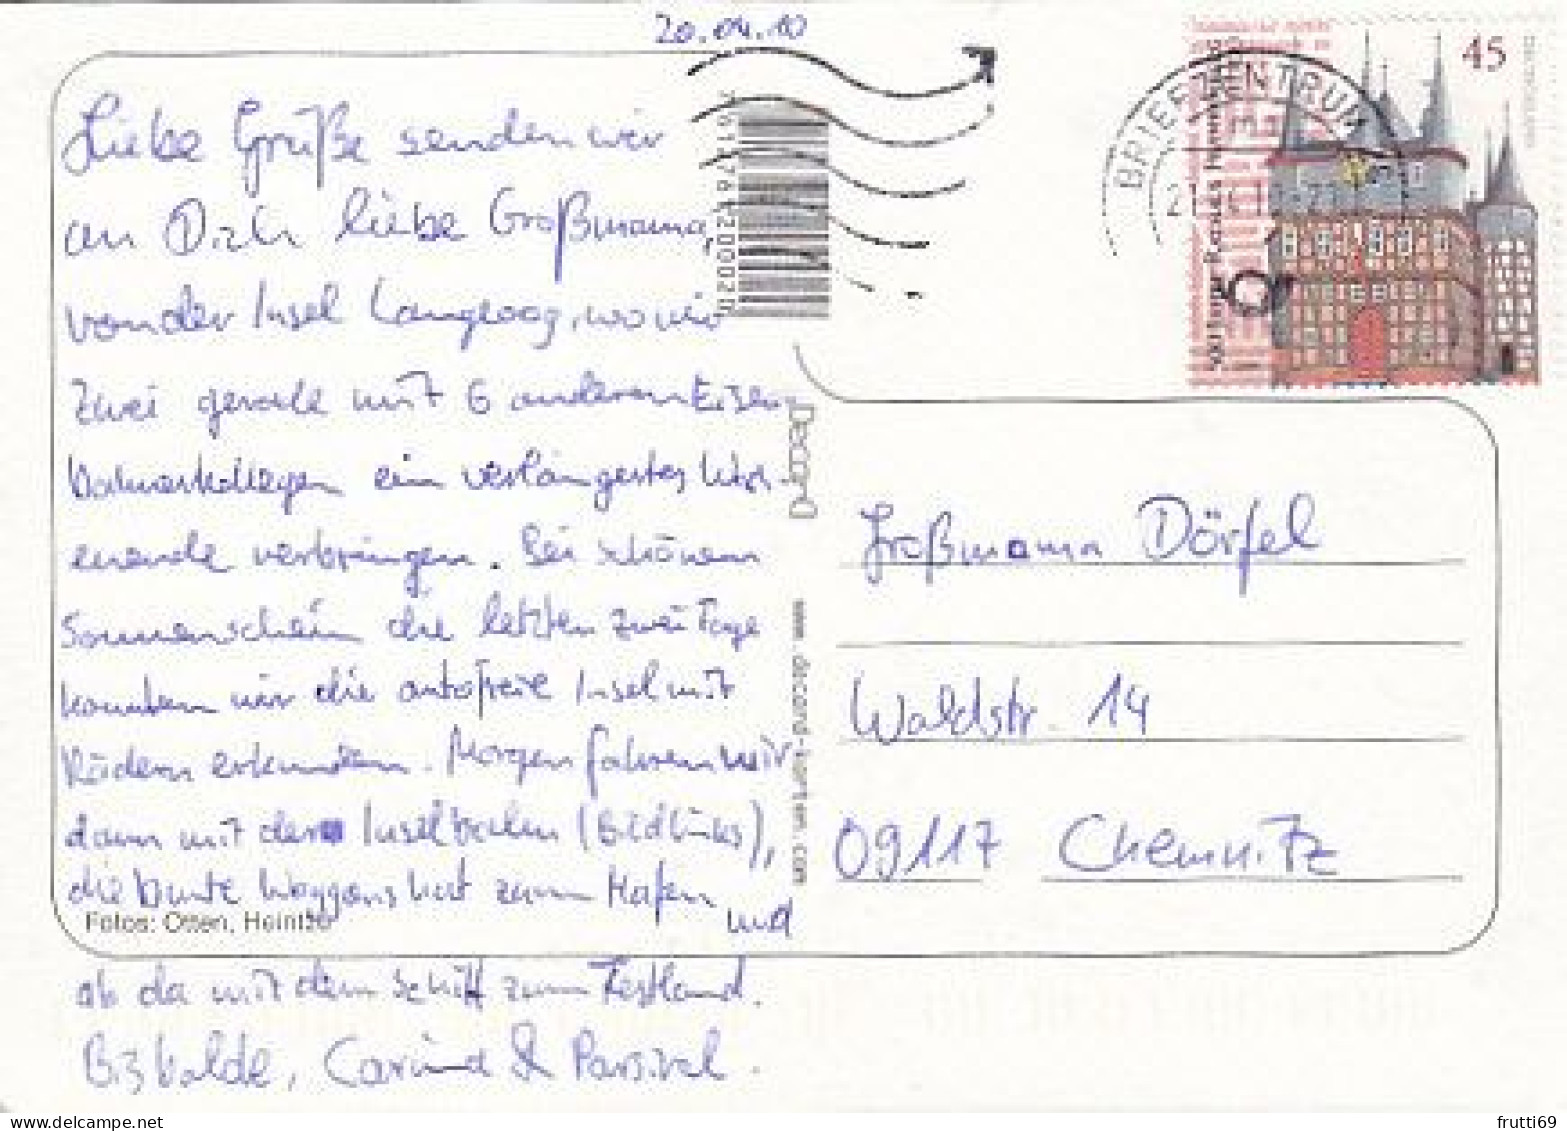 20.04.10
Liebe Grüße senden wir
an Dich liebe Großmama,
von der Insel Langeoog, wo wir
zwei gerade mit 6 anderen Eisen-
bahnerkollegen ein verlängertes Woch-
enende verbringen. Bei schönem
Sonnenschein die letzten zwei Tage
konnten wir die autofreie Insel mit
Rädern erkunden. Morgen fahren wir
dann mit der Inselbahn
die bunte Waggons hat zum Hafen und
ab da mit dem Schiff zum Festland.
Bis balde, Carina & Parsival.
Fotos: Otten, Heintze
Decand
www.decand-karten.com
BRIEFZENTRUM
45
DEUTSCHLAND
500 Jahre Rathaus
Großmama Dörfel
Waldstr. 14
09117 Chemnitz
frutti69